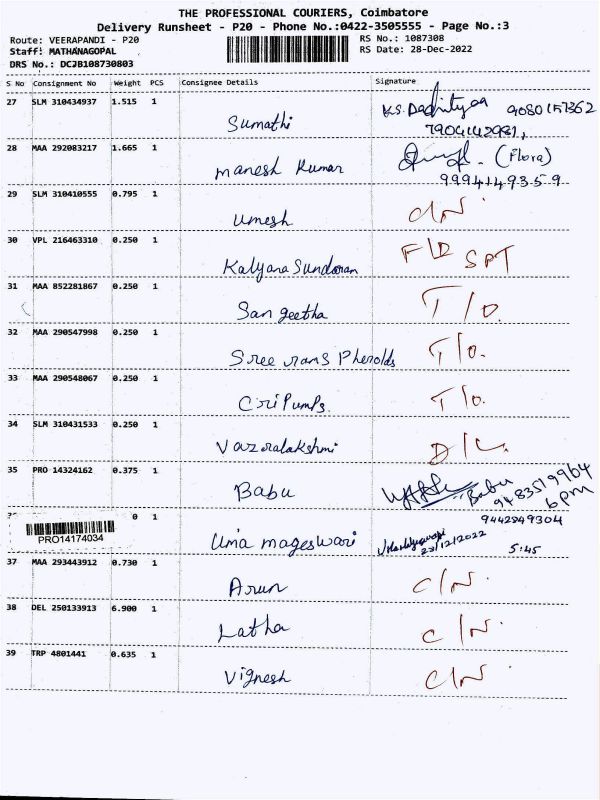 THE PROFESSIONAL COURIERS, Coimbatore
Delivery Runsheet - P20 - Phone No.:0422-3505555 - Page No.:3
Route: VEERAPANDI - P20 RS No.: 1087308
Staff: MATHANAGOPAL RS Date: 28-Dec-2022
DRS No.: DCJB108730803
S No Consignment No Weight PCS Consignee Details Signature
27 SLM 310434937 1.515 1 Sumathi K.S. 9080157362
7904142981,
28 MAA 292083217 1.665 1 Manesh Kumar (Flora)
9994149359
29 SLM 310410555 0.795 1 Umesh C/N
30 VPL 216463310 0.250 1 Kalyana Sundaran F/D SPT
31 MAA 852281867 0.250 1 Sangeetha T/O.
32 MAA 290547998 0.250 1 Sree rans Pherolds T/O.
33 MAA 290548067 0.250 1 Cri Pumps. T/O.
34 SLM 310431533 0.250 1 Vazralakshmi D/L.
35 PRO 14324162 0.375 1 Babu Babu
9483519964
6pm
0 1 Uma mageswari 9442849304
PRO14174034 28/12/2022 5:45
37 MAA 293443912 0.730 1 Arun C/N.
38 DEL 250133913 6.900 1 Latha C/N.
39 TRP 4801441 0.635 1 Vignesh C/N